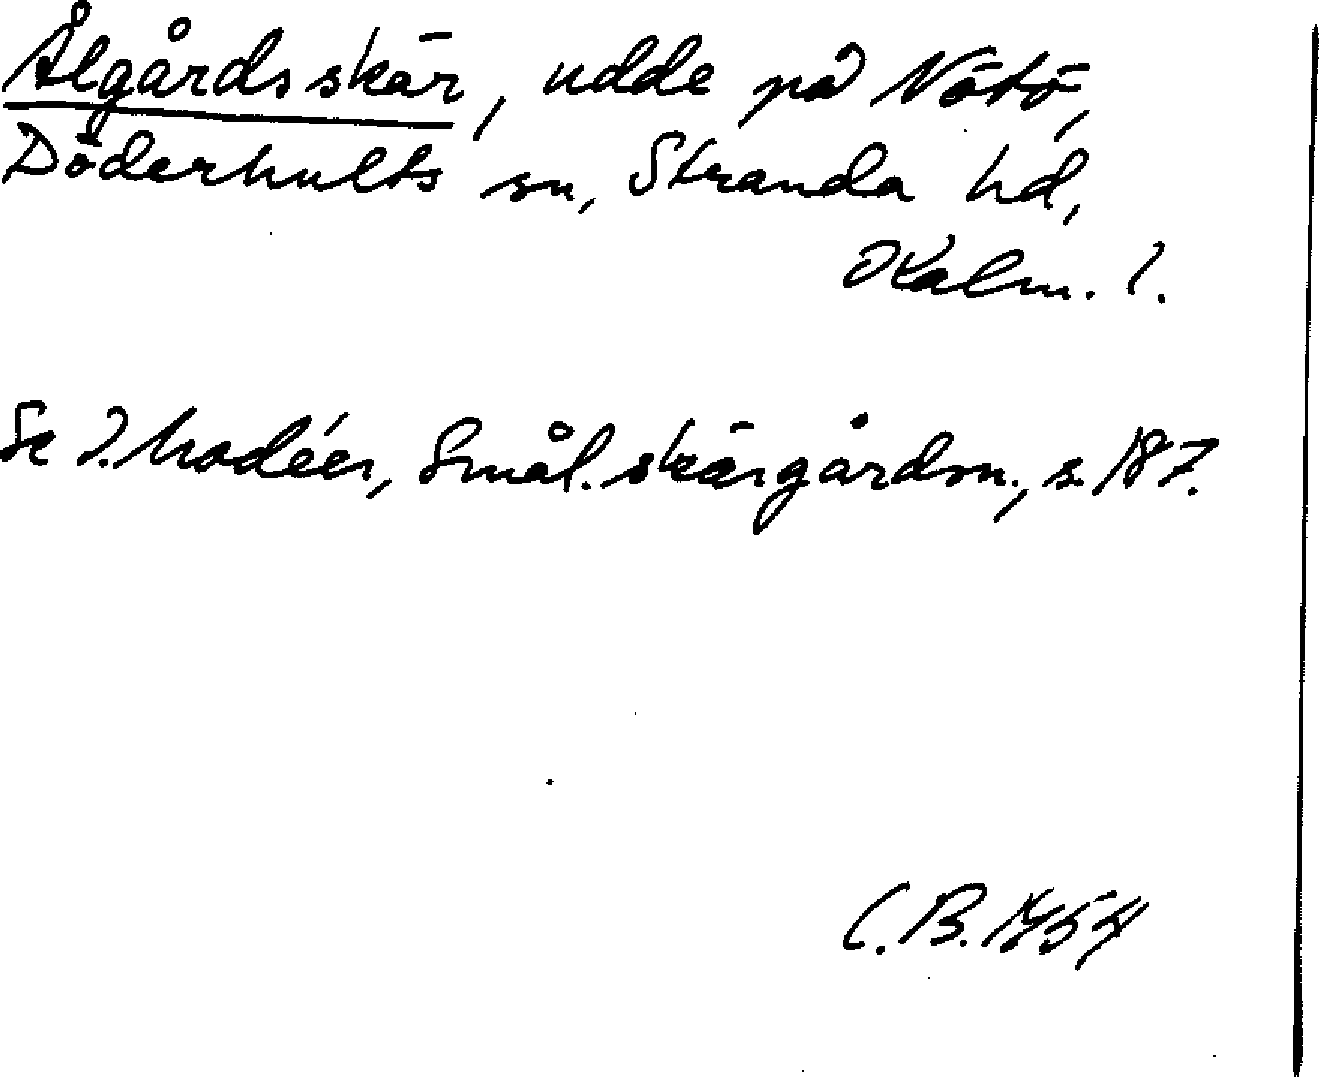 Ålgårdsskär, udde på Nötö,
Döderhults sn, Stranda hd,
Kalm. l.
Se I. Modéer, Smål. skärgårdsn., s. 187.
C. B. 1954